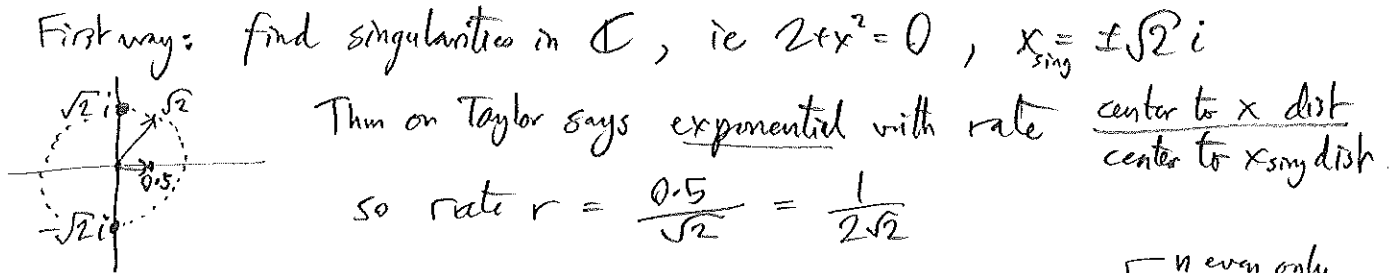 First way: find singularities in ℂ, ie 2+x² = 0, x_sing = ±√2 i
√2 i √2
Thm on Taylor says exponential with rate center to x dist / center to x_sing dist.
0.5
-√2 i
so rate r = 0.5/√2 = 1/(2√2)
n even only